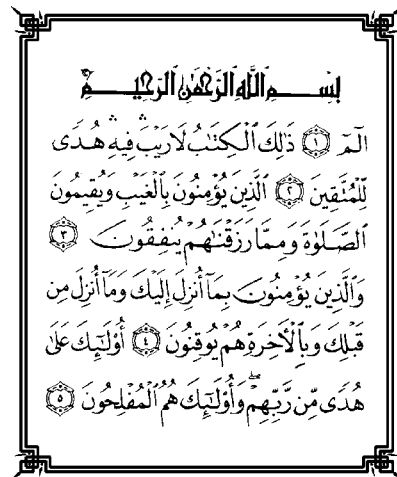 بِسْمِ ٱللَّهِ ٱلرَّحْمَٰنِ ٱلرَّحِيمِ
الٓمٓ ١ ذَٰلِكَ ٱلْكِتَٰبُ لَا رَيْبَ ۛ فِيهِ ۛ هُدًى
لِّلْمُتَّقِينَ ٢ ٱلَّذِينَ يُؤْمِنُونَ بِٱلْغَيْبِ وَيُقِيمُونَ
ٱلصَّلَوٰةَ وَمِمَّا رَزَقْنَٰهُمْ يُنفِقُونَ ٣
وَٱلَّذِينَ يُؤْمِنُونَ بِمَآ أُنزِلَ إِلَيْكَ وَمَآ أُنزِلَ مِن
قَبْلِكَ وَبِٱلْأَخِرَةِ هُمْ يُوقِنُونَ ٤ أُو۟لَٰٓئِكَ عَلَىٰ
هُدًى مِّن رَّبِّهِمْ ۖ وَأُو۟لَٰٓئِكَ هُمُ ٱلْمُفْلِحُونَ ٥